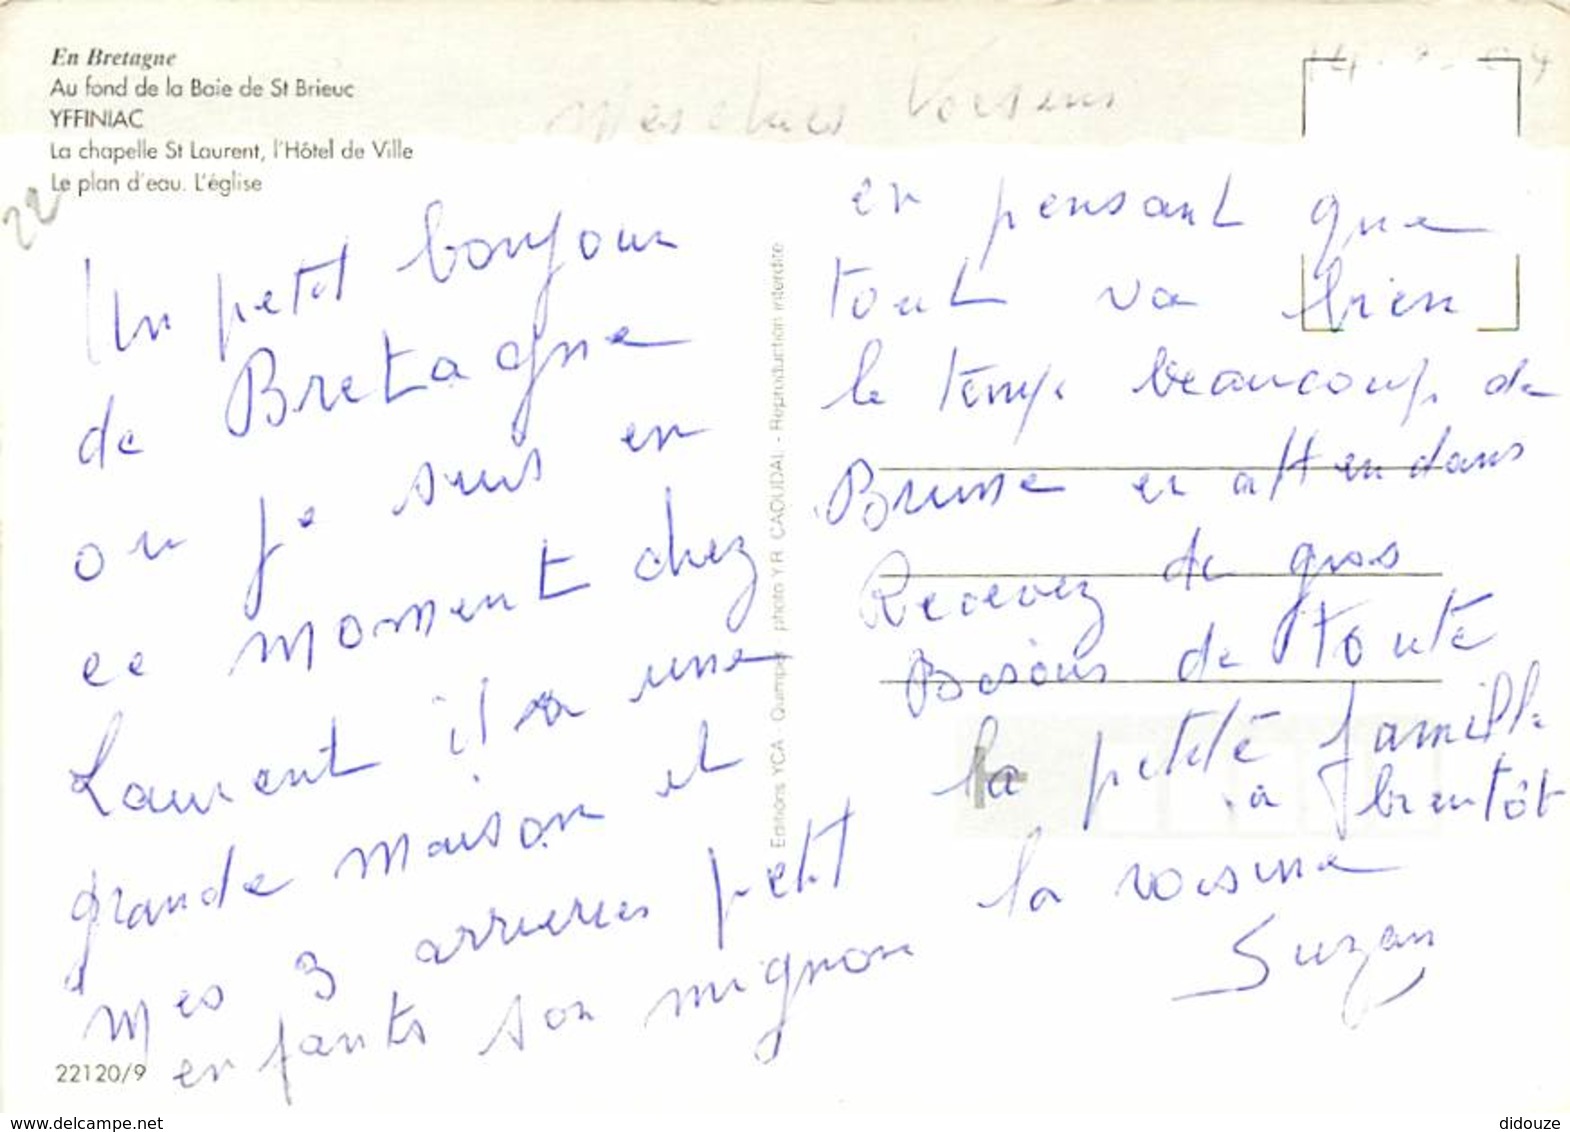 En Bretagne
Au fond de la Baie de St Brieuc
YFFINIAC
La chapelle St Laurent, l'Hôtel de Ville
Le plan d'eau. L'église
22
Mes chers Voisins
Un petit bonjour
de Bretagne
ou je suis en
ce moment chez
Laurent il a une
grande maison et
mes 3 arrieres petit
enfants son mignon
22120/9
Editions YCA - Quimper - photo Y.R. CAOUDAL - Reproduction interdite
en pensant que
tout va bien
le temps beaucoup de
Brume en attendans
Recevez de gros
Bisous de toute
la petite famille
a bientôt
la voisine
Suzan
www.delcampe.net
didouze